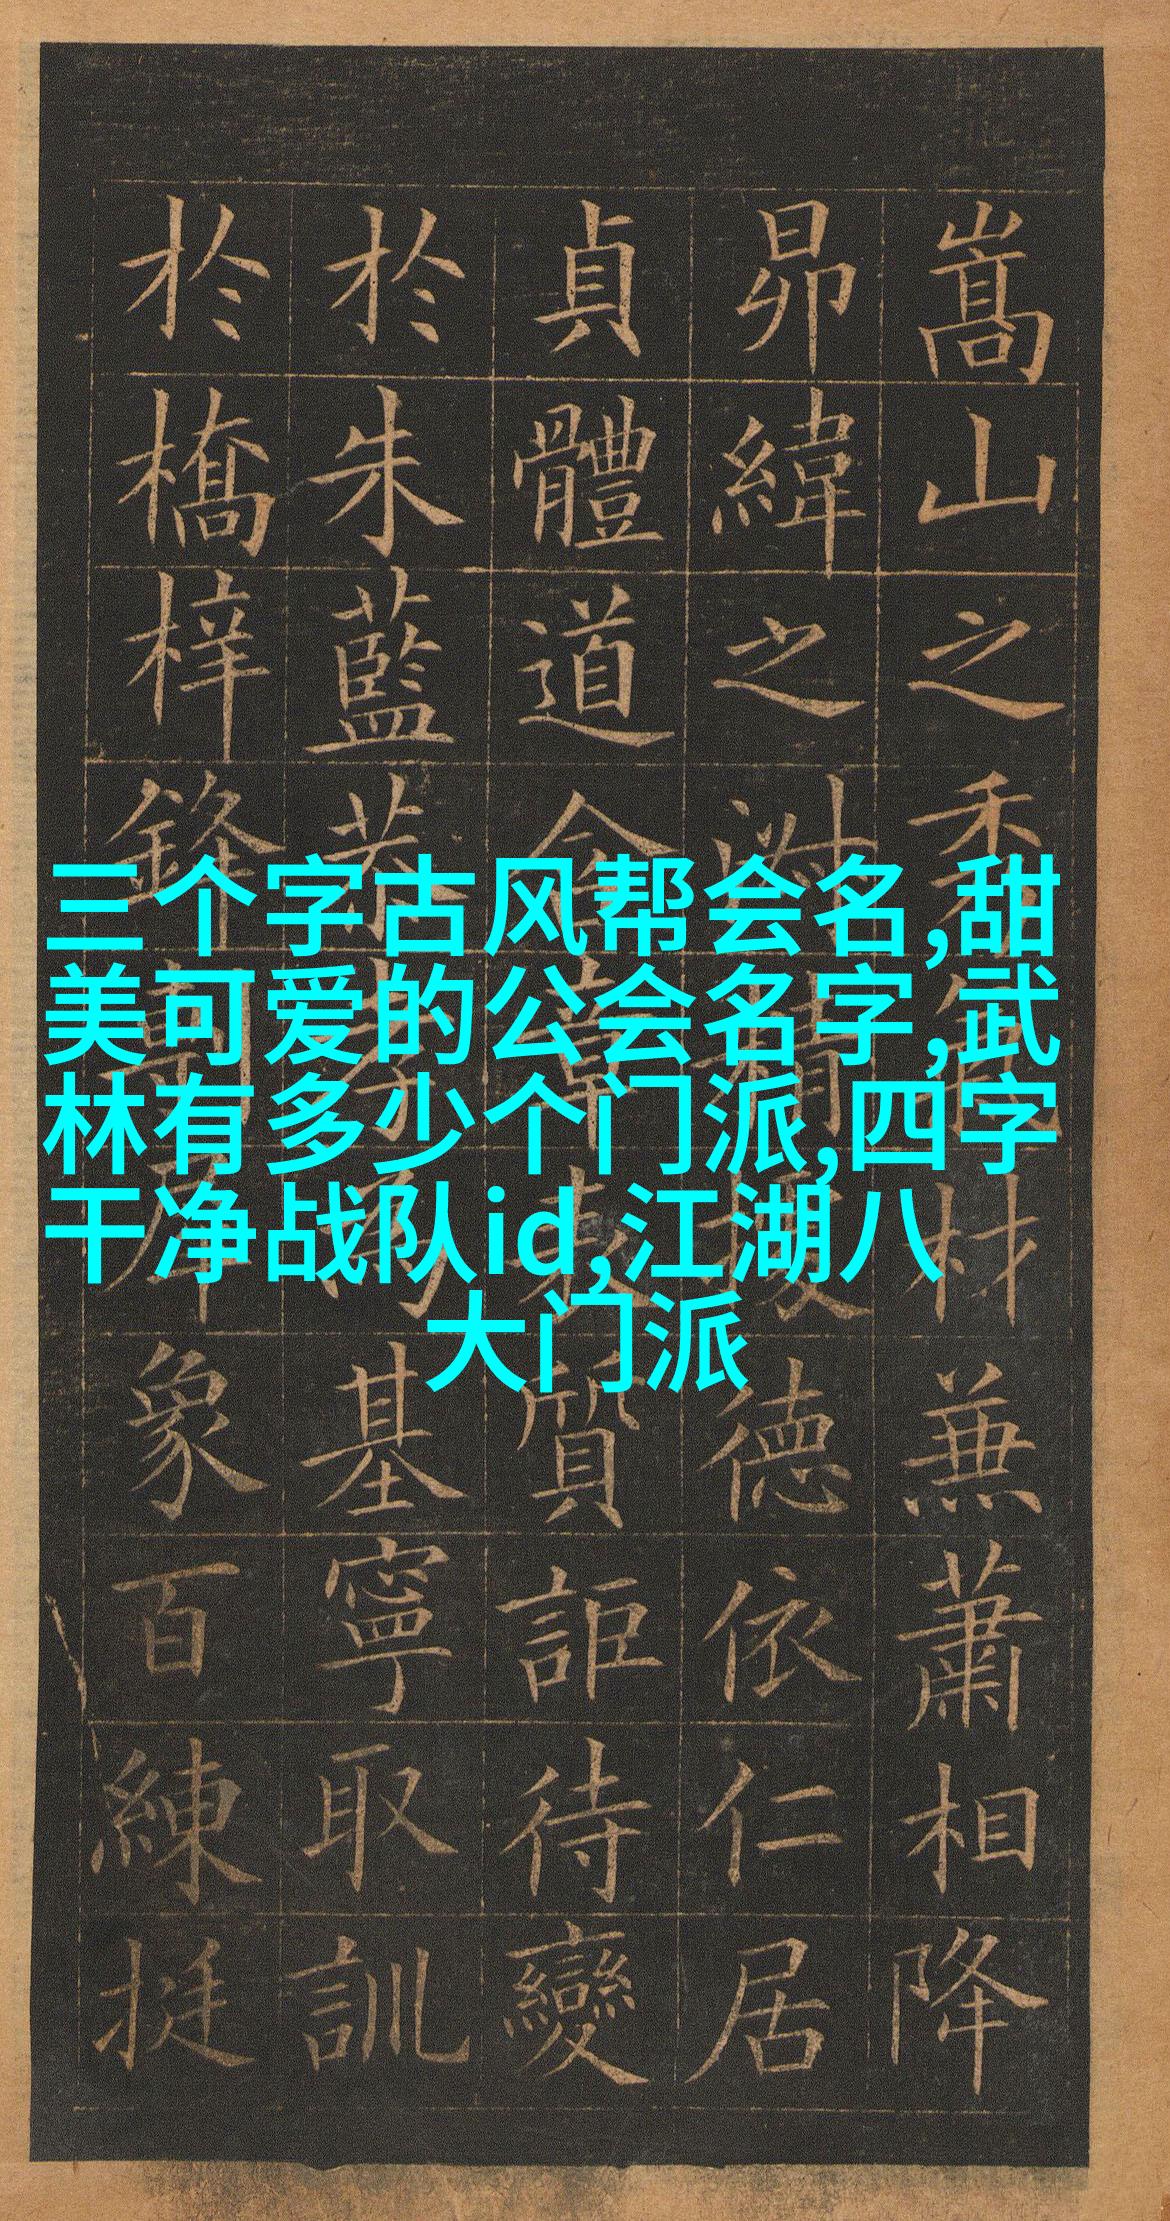 嵩山之秀材兼蕭相降
昴緯之精德依仁居
貞體道含章表質詎待變
於朱藍恭孝為基寧取訓
於橋梓鋒犀象百練挺
三个字古风帮会名,甜
美可爱的公会名字,武
林有多少个门派,四字
干净战队id,江湖八
大门派